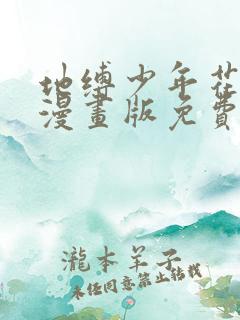 地缚少年花
漫畫版免費
瀧本羊子
未经同意禁止转载